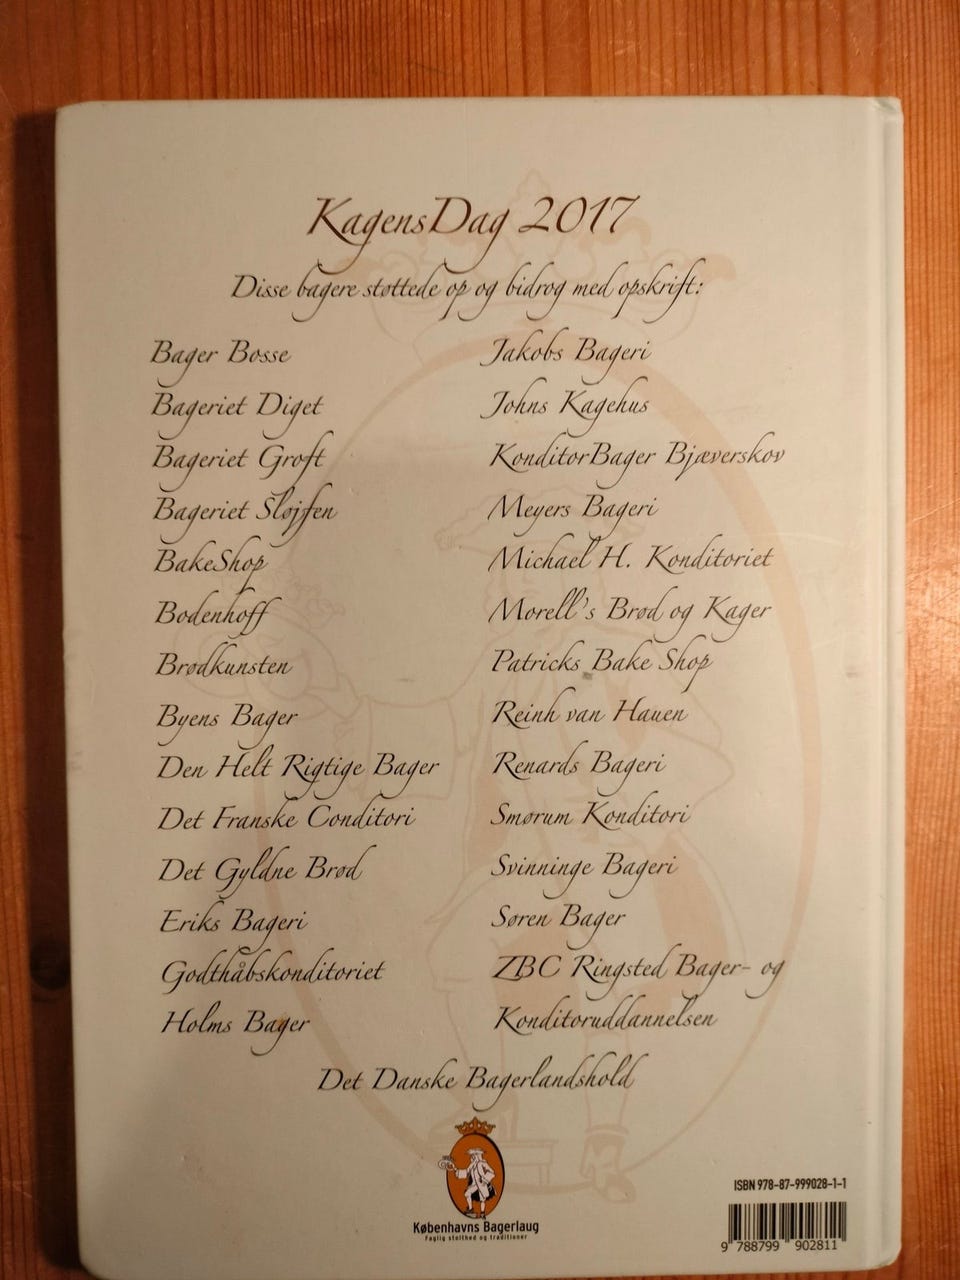 KagensDag 2017
Disse bagere støttede op og bidrog med opskrift:
Bager Bosse
Bageriet Diget
Bageriet Groft
Bageriet Sløjfen
BakeShop
Bodenhoff
Brødkunsten
Byens Bager
Den Helt Rigtige Bager
Det Franske Conditori
Det Gyldne Brød
Eriks Bageri
Godthåbskonditoriet
Holms Bager
Jakobs Bageri
Johns Kagehus
KonditorBager Bjæverskov
Meyers Bageri
Michael H. Konditoriet
Morell's Brød og Kager
Patricks Bake Shop
Reinh van Hauen
Renards Bageri
Smørum Konditori
Svinninge Bageri
Søren Bager
ZBC Ringsted Bager- og
Konditoruddannelsen
Det Danske Bagerlandshold
Københavns Bagerlaug
Faglig stolthed og traditioner
ISBN 978-87-999028-1-1
9 788799 902811